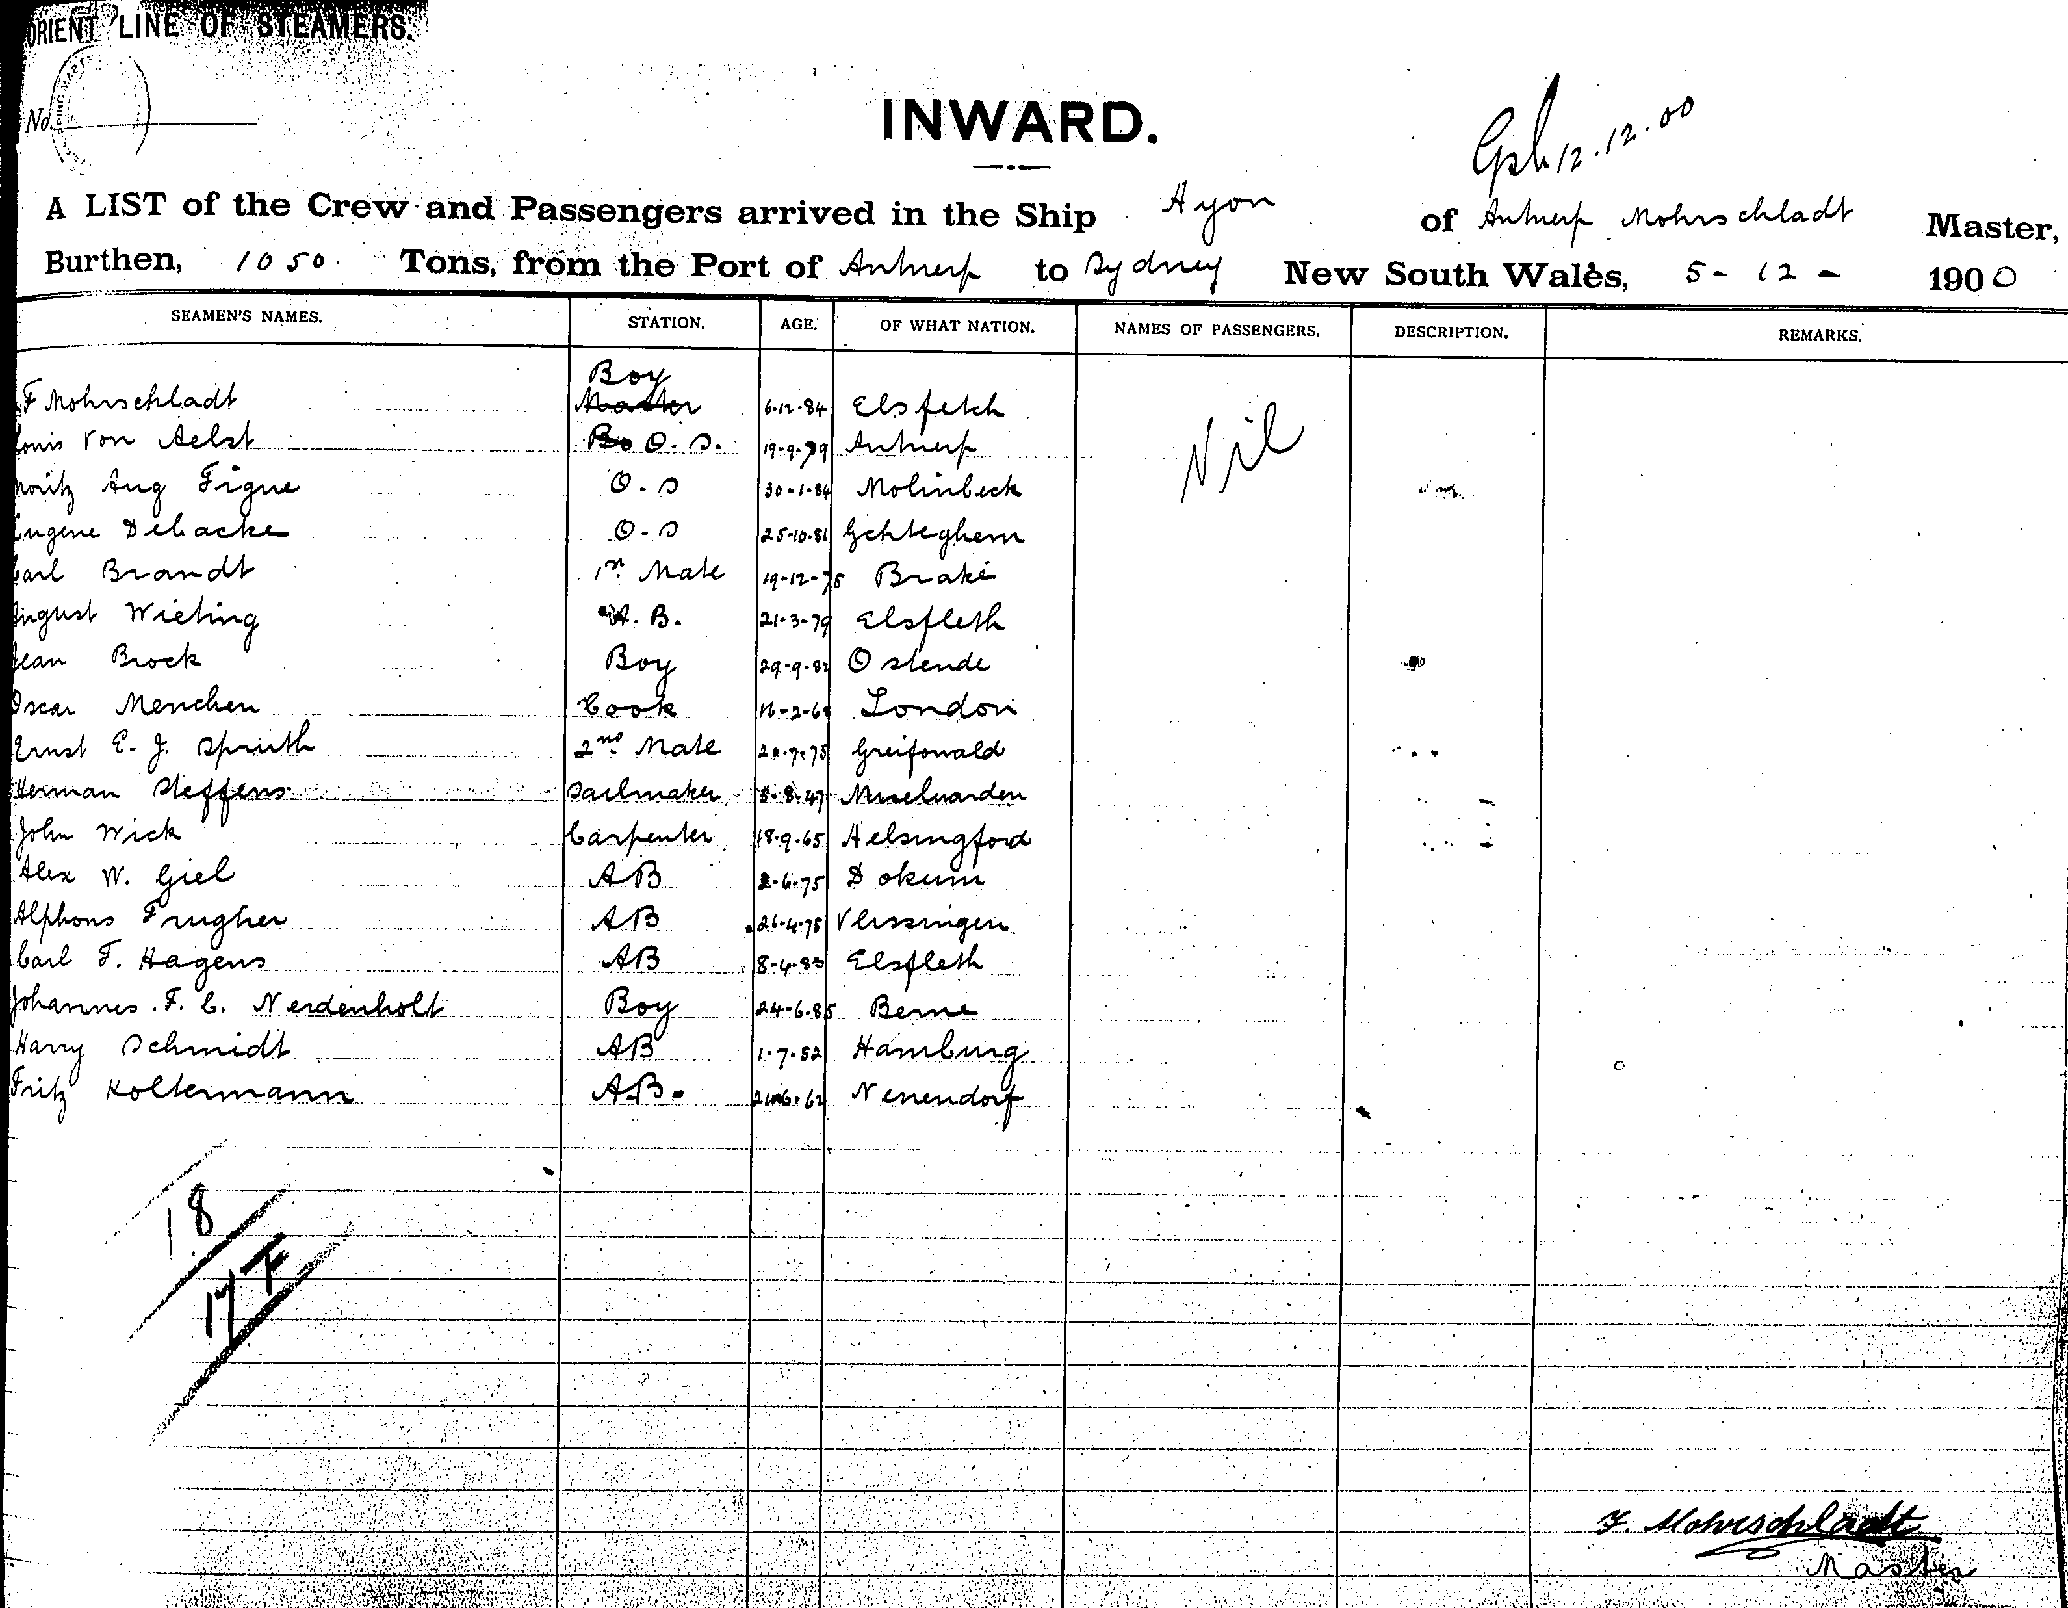 ORIENT LINE OF STEAMERS.
No.
INWARD.
12.12.00
A LIST of the Crew and Passengers arrived in the Ship Ayon of Antwerp Mohrschladt Master,
Burthen, 1050. Tons, from the Port of Antwerp to Sydney New South Wales, 5-12- 1900
SEAMEN'S NAMES. STATION. AGE. OF WHAT NATION. NAMES OF PASSENGERS. DESCRIPTION. REMARKS.
Boy
F Mohrschladt Master 6.12.84 Elsfetch Nil
Louis Von Aelst Bo O.S. 19.9.79 Antwerp
Moritz Aug Figue O.S 30-1-84 Molinbeck
Eugene Debacke O-S 25-10-81 Echteghem
Carl Brandt 1st Mate 19-12-75 Brake
August Wieting A.B. 21-3-79 Elsfleth
Jean Brock Boy 29-9-82 Ostende
Oscar Menchen Cook London
Ernst E. J. Spruth 2nd Mate Greifswald
Herman Steffens Sailmaker 8-8-47
John Wick Carpenter 18-9-65 Helsingford
Alex W. Giel AB 2-6-75 Dokum
Alphons Frugher AB 26-4-78 Vlissingen
Carl F. Hagens AB 8-4-83 Elsfleth
Johannes. F. C. Nerdenholt Boy 24-6-85 Berne
Harry Schmidt AB 1-7-82 Hamburg
Fritz Koltermann AB. Nenendorf
18
17
F. Mohrschladt
Master